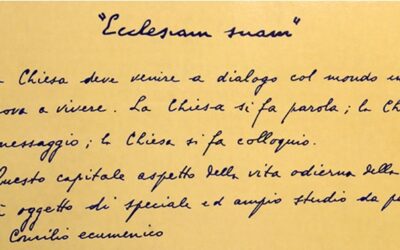 "Ecclesiam suam"
Chiesa deve venire a dialogo col mondo in
a vivere. La Chiesa si fa parola; la Ch
messaggio; la Chiesa si fa colloquio.
Questo capitale aspetto della vita odierna della
oggetto di speciale ed ampio studio da pa
Concilio ecumenico